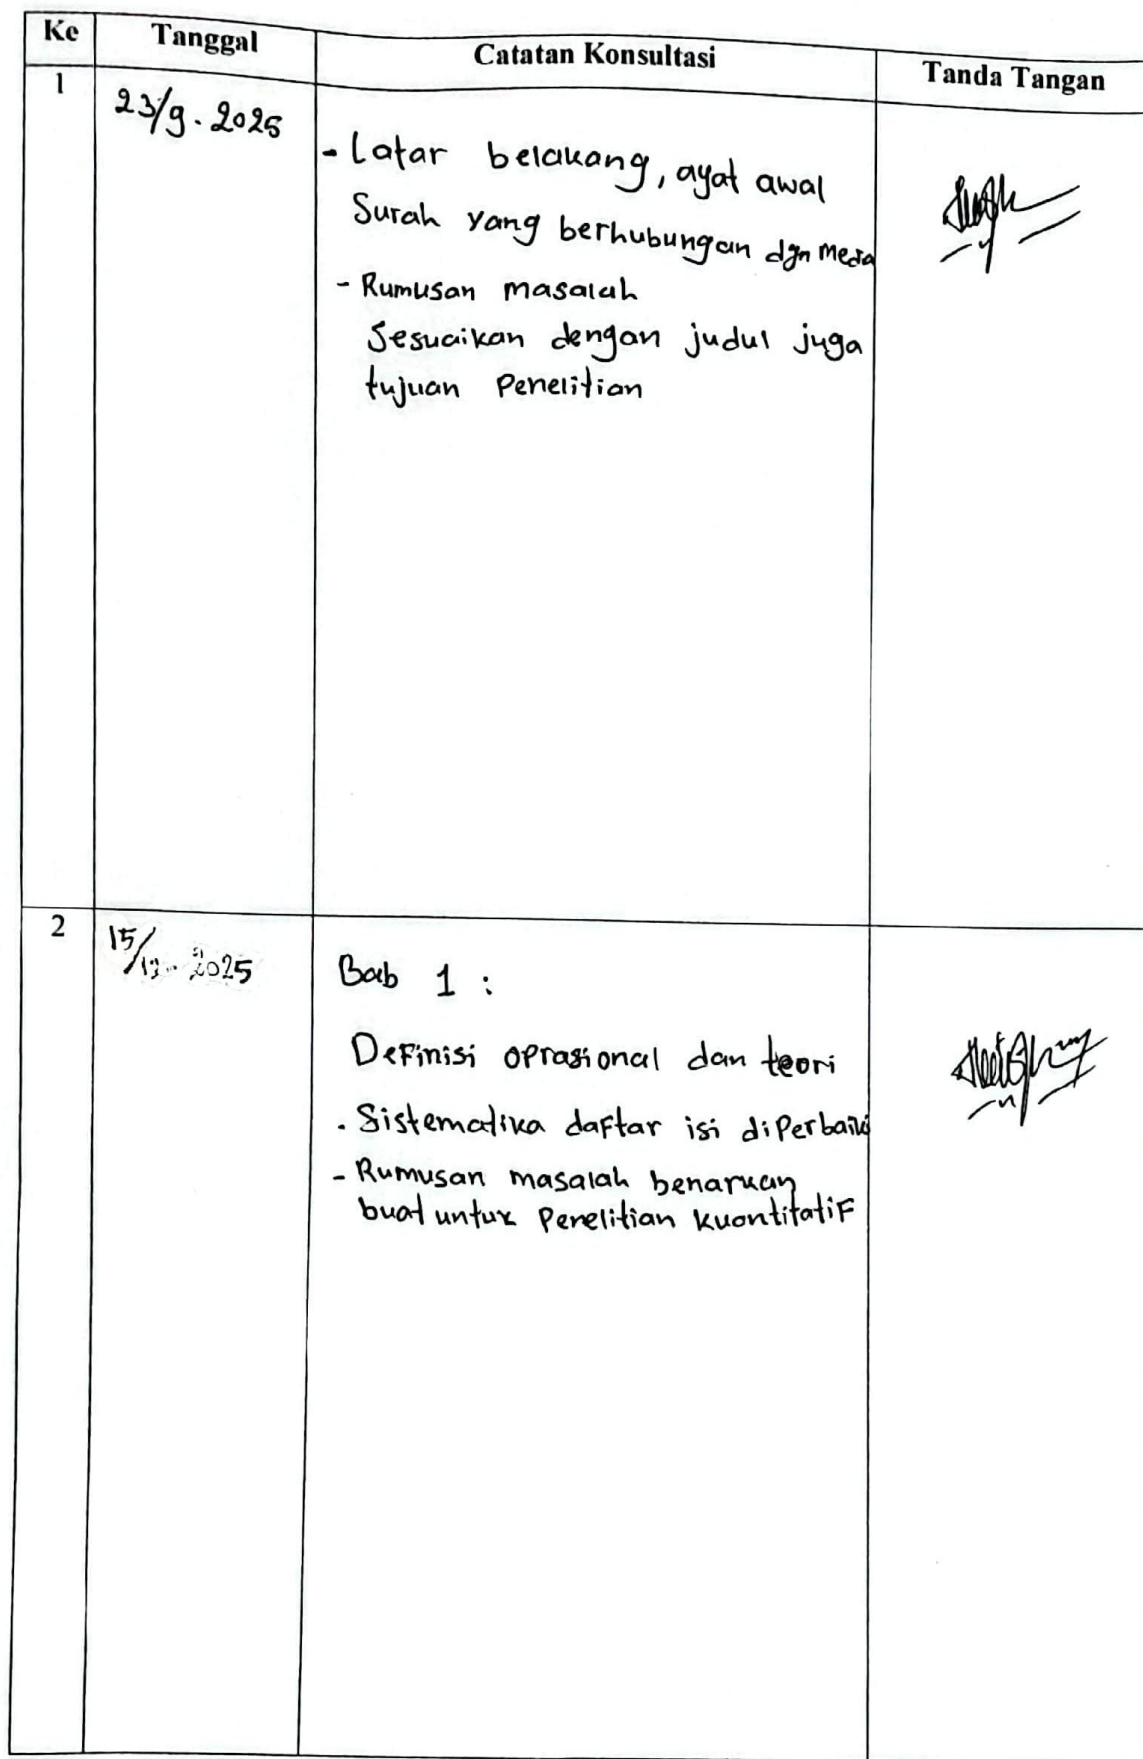 Ke Tanggal Catatan Konsultasi Tanda Tangan
1 23/9.2025
- Latar belakang, ayat awal
Surah yang berhubungan dgn media
- Rumusan masalah
Sesuaikan dengan judul juga
tujuan Penelitian
2 15/12-2025
Bab 1 :
Definisi oprasional dan teori
. Sistematika daftar isi diperbaiki
- Rumusan masalah benarkan
buat untuk Penelitian kuantitatif